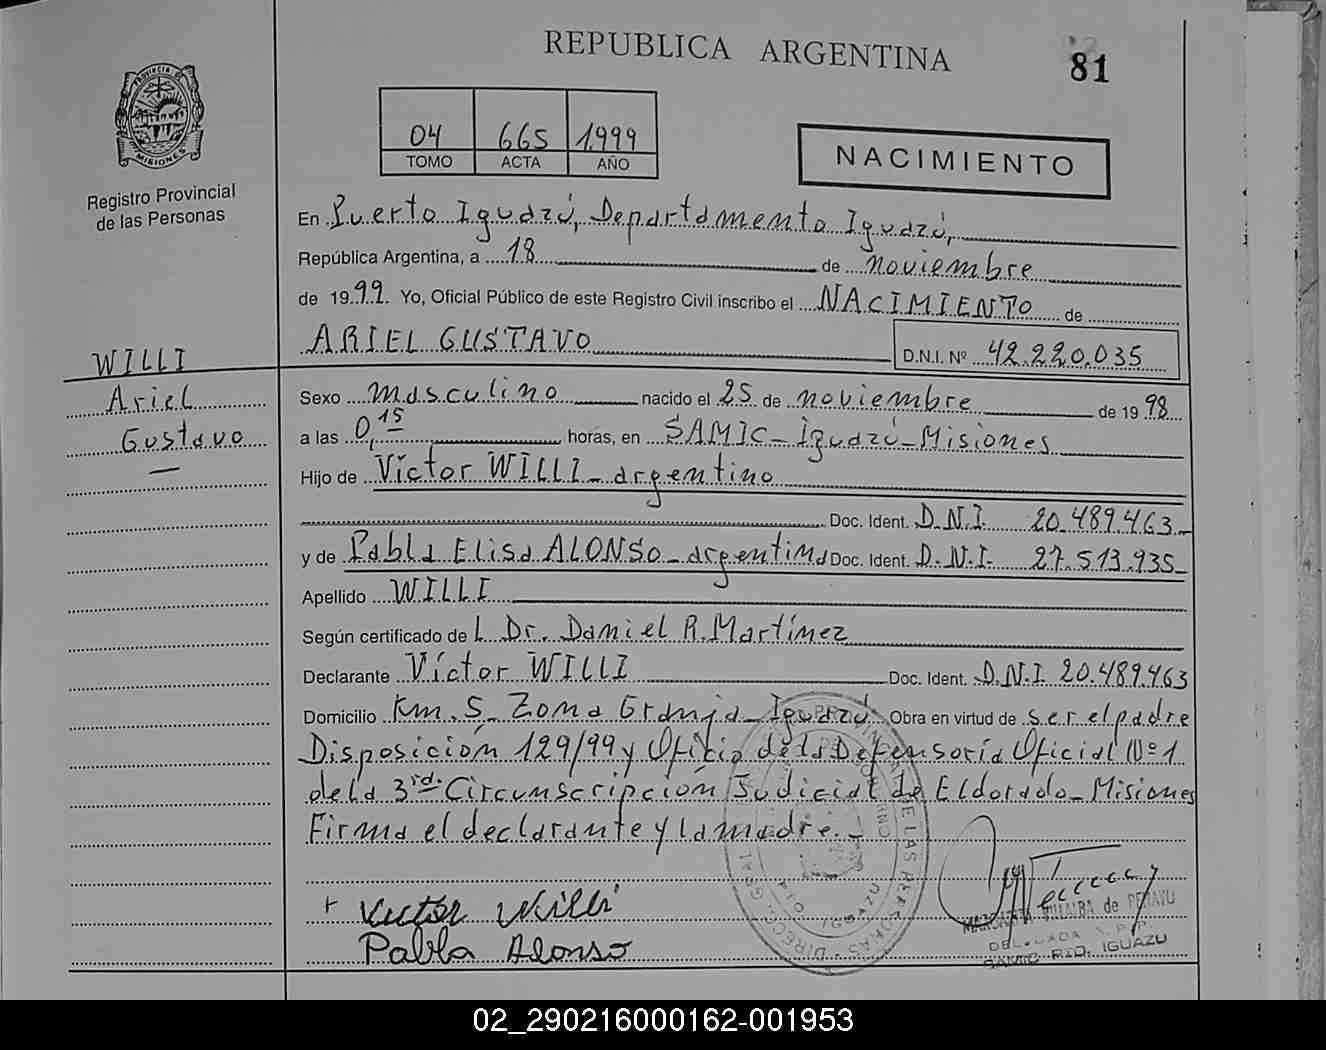 REPUBLICA ARGENTINA
81
PROVINCIA DE MISIONES
Registro Provincial
de las Personas
04 665 1.999
TOMO ACTA AÑO
NACIMIENTO
En Puerto Iguazú, Departamento Iguazú,
República Argentina, a 18 de noviembre
de 1999. Yo, Oficial Público de este Registro Civil inscribo el NACIMIENTO de
ARIEL GUSTAVO D.N.I. Nº 42.220.035
WILLI
Ariel
Gustavo
Sexo masculino nacido el 25 de noviembre de 1998
a las 0,15 horas, en SAMIC - Iguazú - Misiones
Hijo de Víctor WILLI - argentino
Doc. Ident. D.N.I. 20.489.463 -
y de Pabla Elisa ALONSO - argentina Doc. Ident. D.N.I. 27.513.935 -
Apellido WILLI
Según certificado de L Dr. Daniel R. Martínez
Declarante Víctor WILLI Doc. Ident. D.N.I 20.489.463
Domicilio Km. 5 - Zona Granja - Iguazú Obra en virtud de ser el padre
Disposición 129/99 y Oficio de la Defensoría Oficial Nº 1
de la 3ra. Circunscripción Judicial de Eldorado - Misiones
Firma el declarante y la madre. -
Victor Willi
Pabla Alonso
VILLALBA de
SAMIC PTO. IGUAZU
02_290216000162-001953